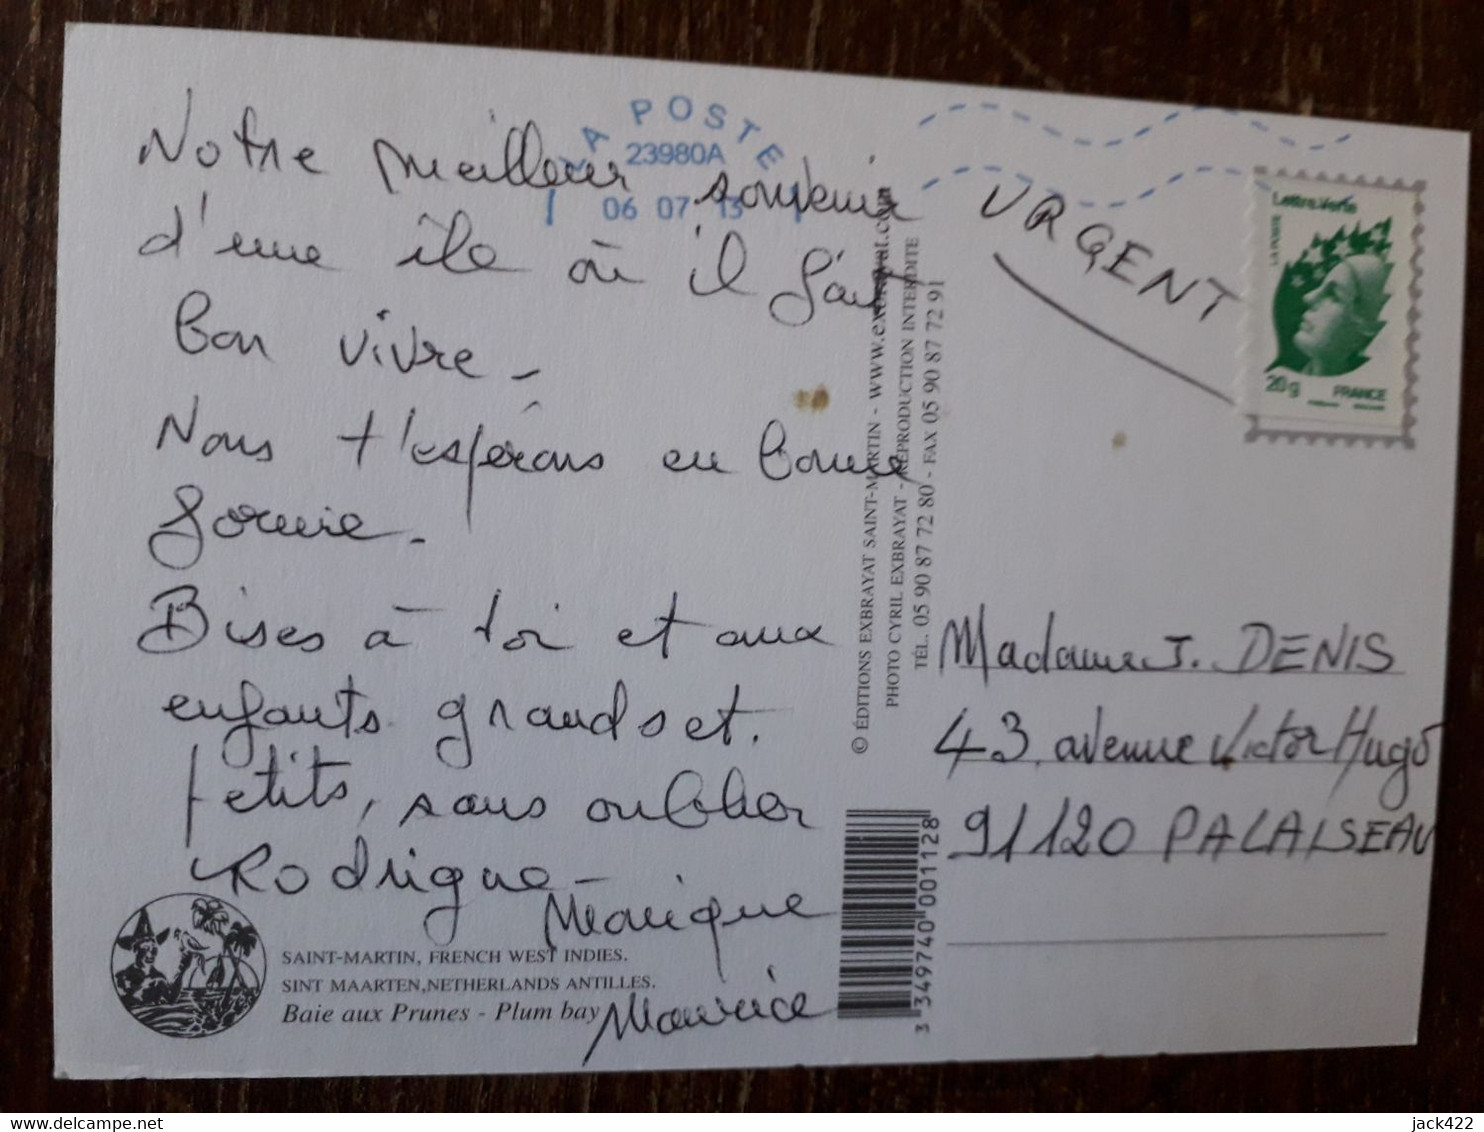 Notre meilleur souvenir
d'une île où il fait
bon vivre -
Nous t'espérons en bonne
forme.
Bises à toi et aux
enfants grands et
petits, sans oublier
Rodrigue -
Monique
Maurice
SAINT-MARTIN, FRENCH WEST INDIES.
SINT MAARTEN, NETHERLANDS ANTILLES.
Baie aux Prunes - Plum bay
LA POSTE
23980A
06 07 13
© ÉDITIONS EXBRAYAT SAINT-MARTIN - www.exbrayat.com
PHOTO CYRIL EXBRAYAT - REPRODUCTION INTERDITE
TÉL. 05 90 87 72 80 - FAX 05 90 87 72 91
3 349740 001128
URGENT
Lettre Verte
LA POSTE
20g
FRANCE
Madame J. DENIS
43, avenue Victor Hugo
91120 PALAISEAU
delcampe.net
jack422